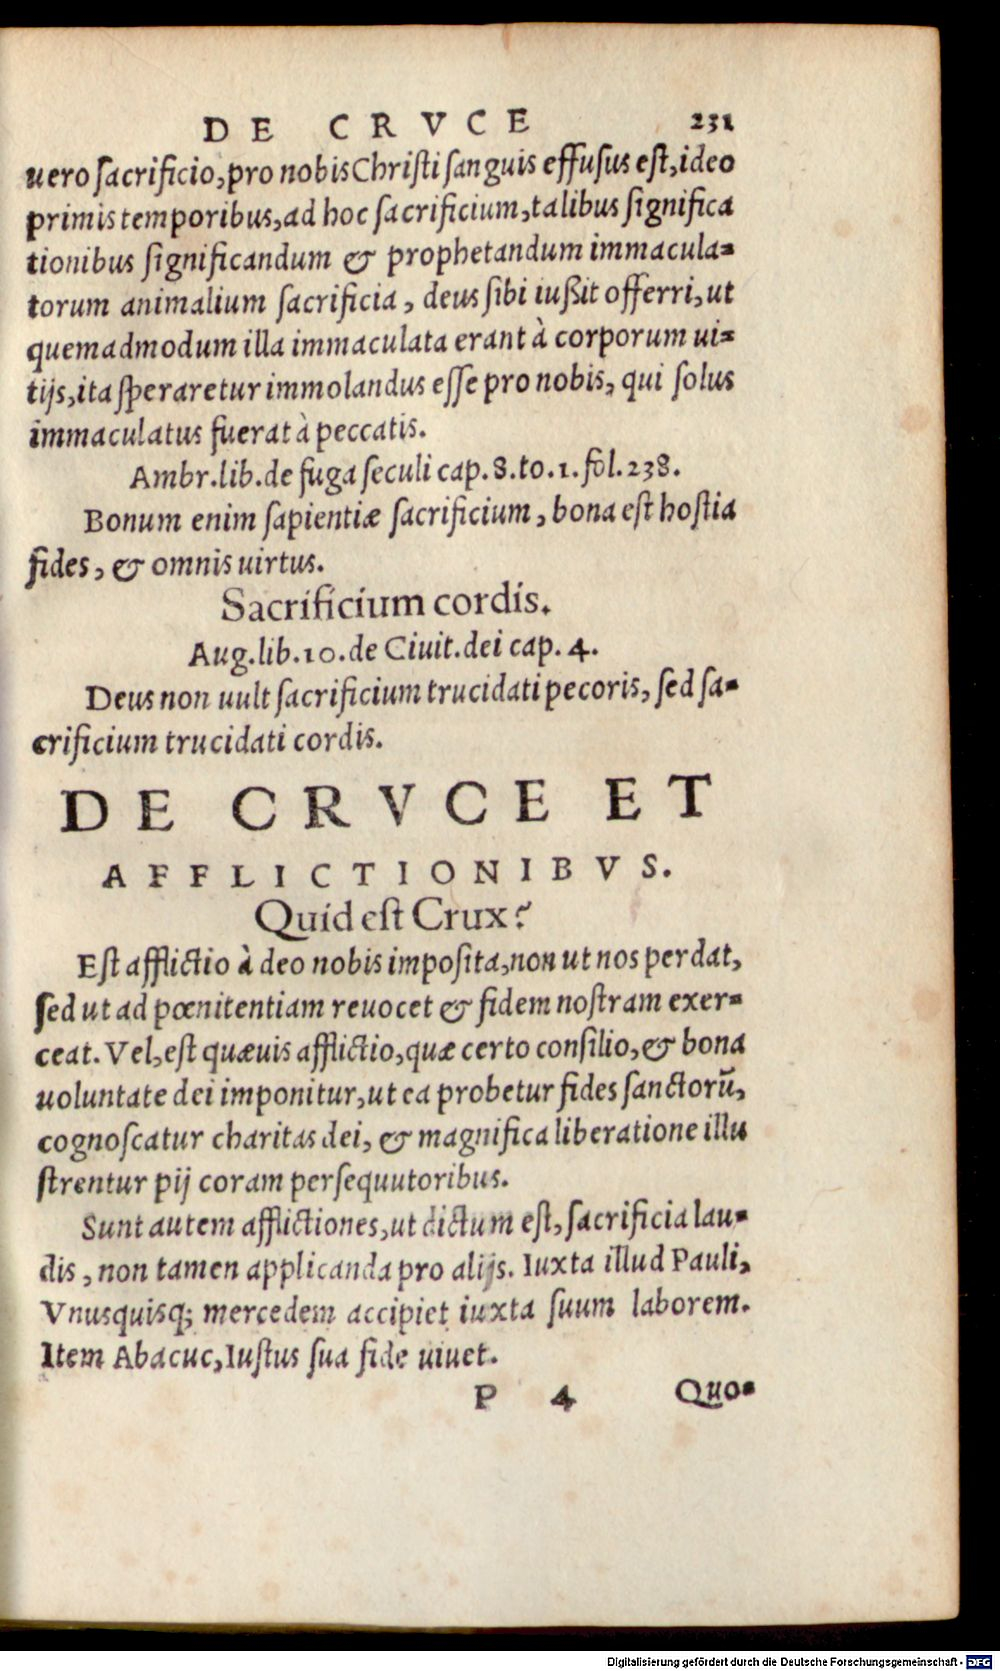 DE CRVCE 231
uero ſacrificio, pro nobis Chriſti ſanguis effuſus eſt, ideo
primis temporibus, ad hoc ſacrificium, talibus ſignifica
tionibus ſignificandum & prophetandum immacula-
torum animalium ſacrificia, deus ſibi iußit offerri, ut
quemadmodum illa immaculata erant à corporum ui-
tijs, ita ſperaretur immolandus eſſe pro nobis, qui ſolus
immaculatus fuerat à peccatis.
Ambr. lib. de fuga ſeculi cap. 8. to. 1. fol. 238.
Bonum enim ſapientiæ ſacrificium, bona eſt hoſtia
fides, & omnis uirtus.
Sacrificium cordis.
Aug. lib. 10. de Ciuit. dei cap. 4.
Deus non uult ſacrificium trucidati pecoris, ſed ſa-
crificium trucidati cordis.
DE CRVCE ET
AFFLICTIONIBVS.
Quid eſt Crux?
Eſt afflictio à deo nobis impoſita, non ut nos perdat,
ſed ut ad pœnitentiam reuocet & fidem noſtram exer-
ceat. Vel, eſt quæuis afflictio, quæ certo conſilio, & bona
uoluntate dei imponitur, ut ea probetur fides ſanctorū,
cognoſcatur charitas dei, & magnifica liberatione illu
ſtrentur pij coram perſequutoribus.
Sunt autem afflictiones, ut dictum eſt, ſacrificia lau-
dis, non tamen applicanda pro alijs. Iuxta illud Pauli,
Vnusquisq; mercedem accipiet iuxta ſuum laborem.
Item Abacuc, Iuſtus ſua fide uiuet.
P 4 Quo-
Digitalisierung gefördert durch die Deutsche Forschungsgemeinschaft - DFG